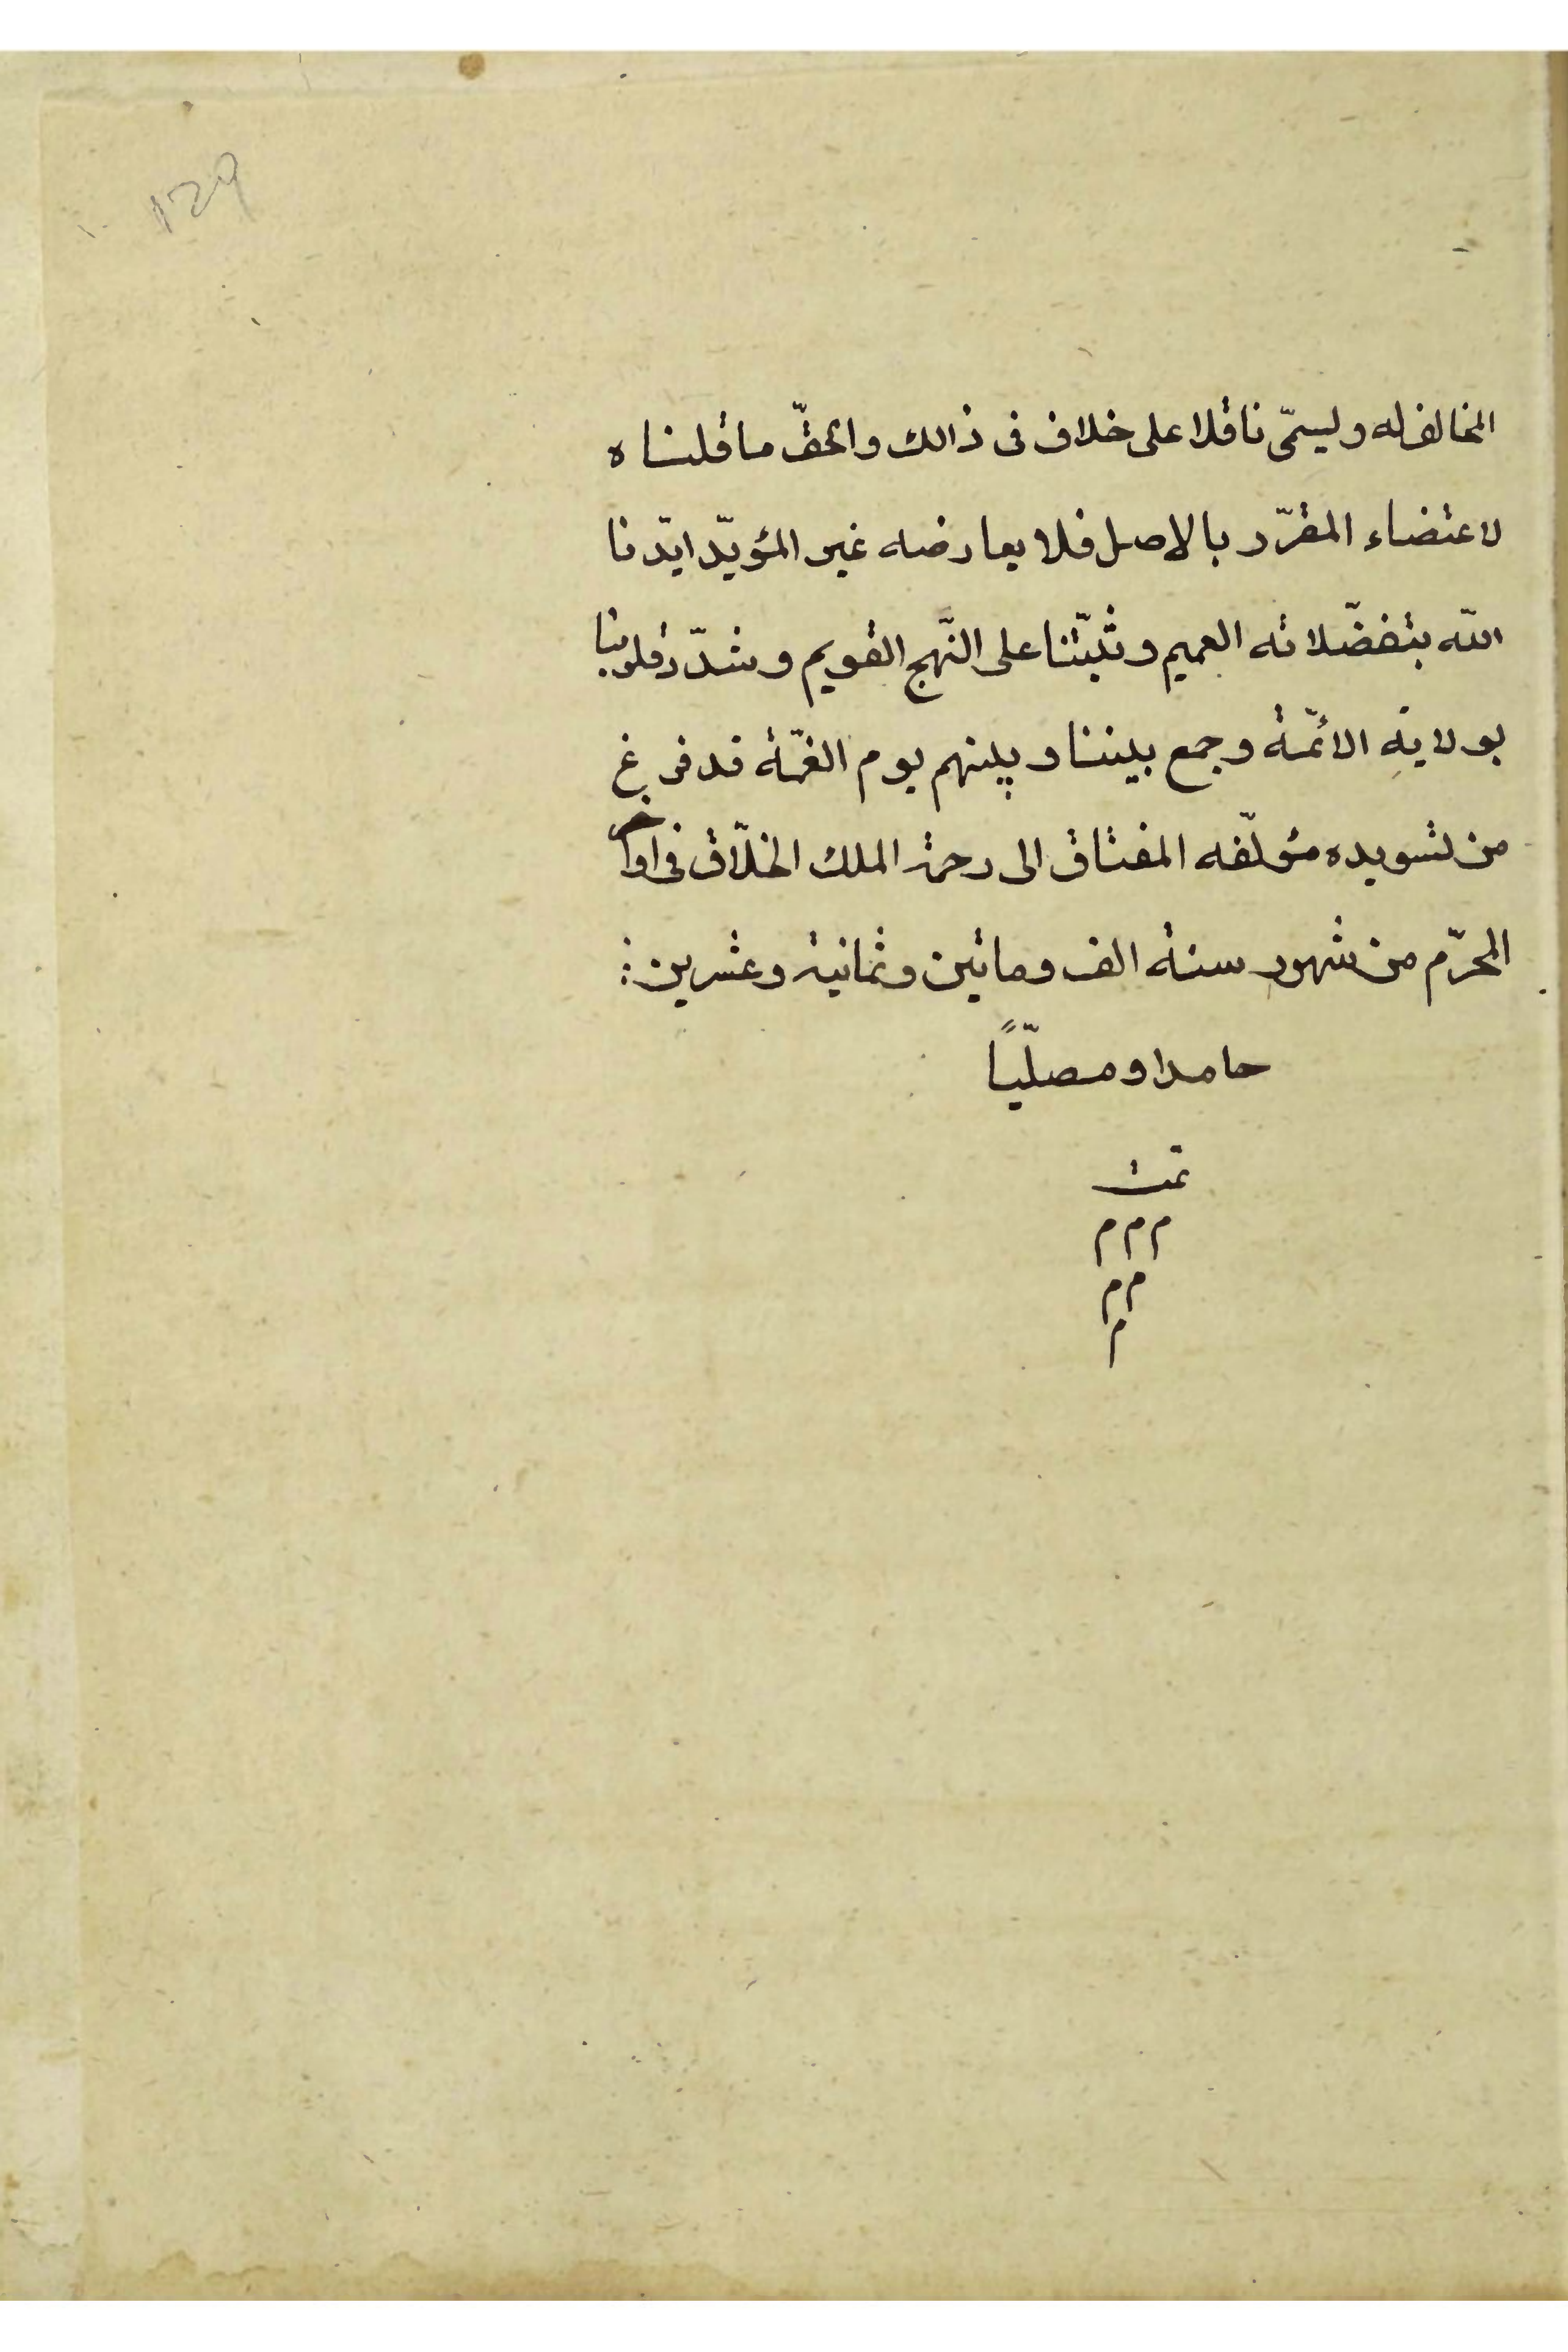 ١٢٩
المخالف له ويسمّى ناقلا على خلاف فى ذالك والحقّ ما قلناه
لاعتضاء المقرّر بالاصل فلا يعارضه غير المؤيّد ايّدنا
اللّه بتفضّلاته العميم وثبّتنا على النّهج القويم وشدّد قلوبنا
بولاية الائمّة وجمع بيننا وبينهم يوم الغمّة قد فرغ
من تسويده مؤلّفه المفتاق الى رحمة الملك الخلّاق فى اواخر
المحرّم من شهور سنة الف وماتين وثمانية وعشرين
حامدا ومصلّيًا
تمت
م م م
م م
م